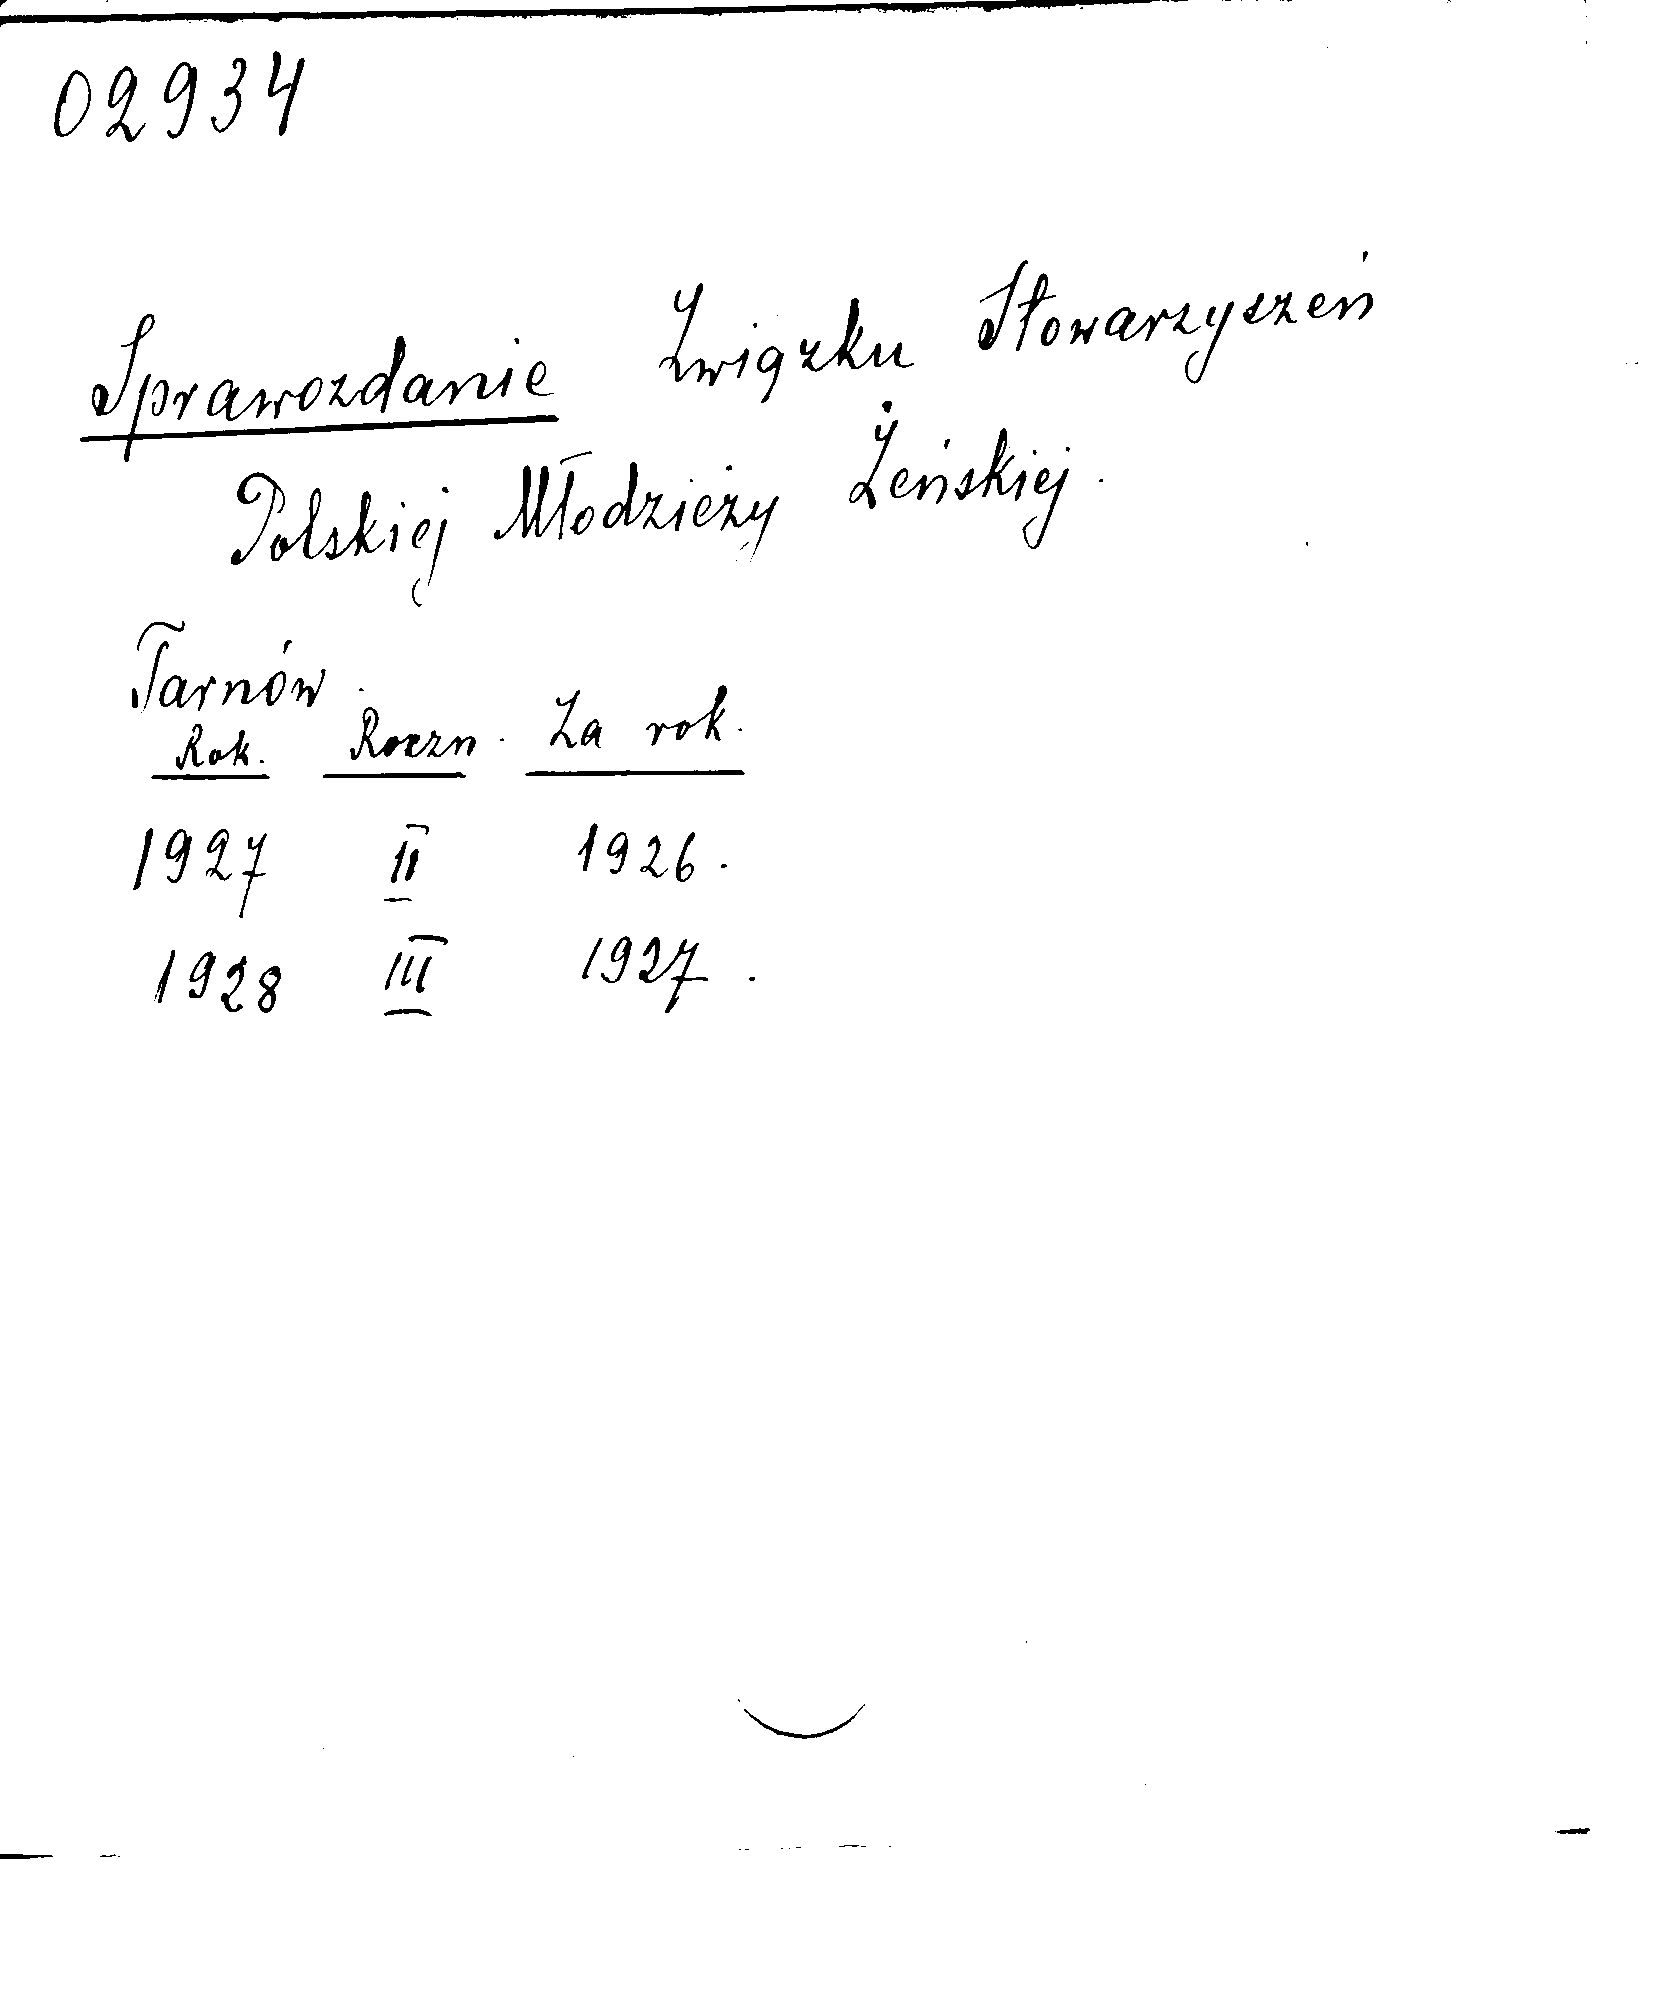 02934
Sprawozdanie Związku Stowarzyszeń
Polskiej Młodzieży Żeńskiej.
Tarnów.
Rok. Roczn. Za rok.
1927 II 1926.
1928 III 1927.